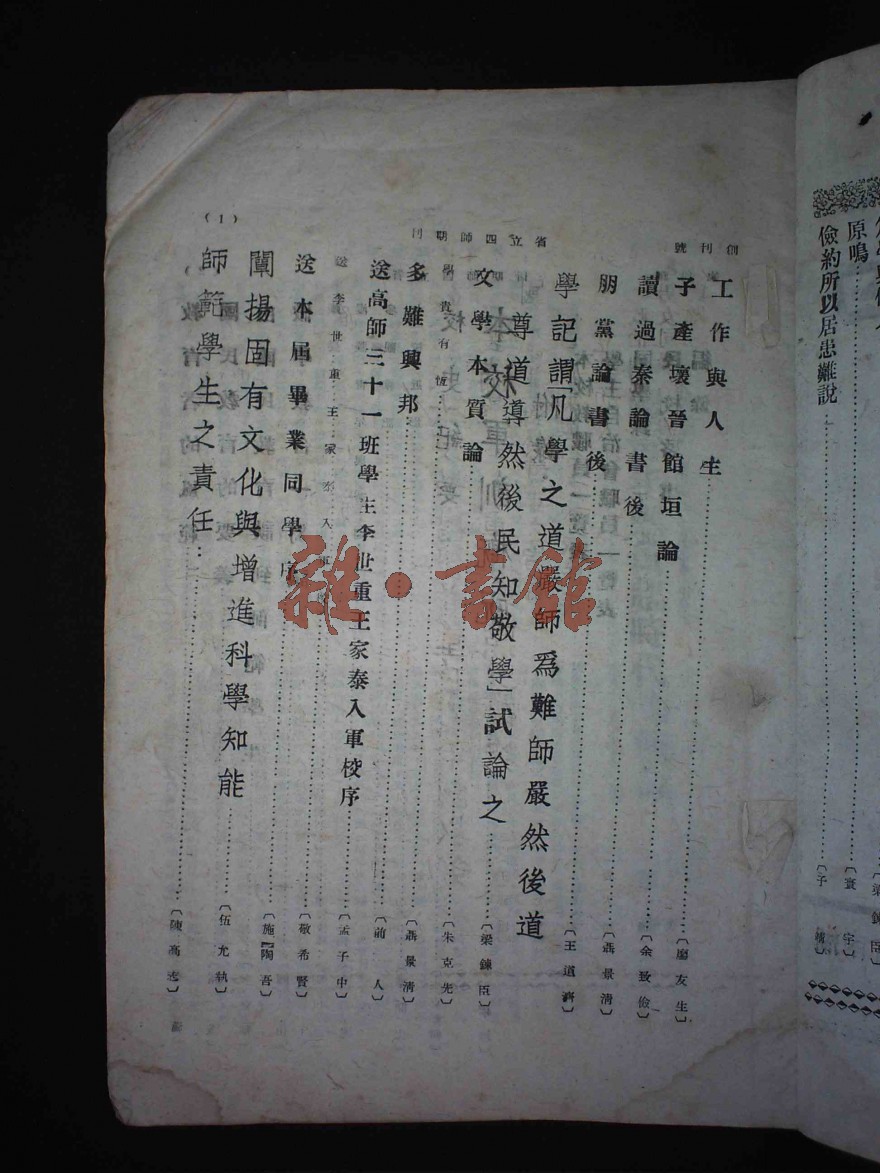 原鳴……〔寰宇〕
儉約所以居患難說……〔子靖〕
創刊號
省立四師期刊
(1)
工作與人生……〔廖友生〕
子產壞晉館垣論……〔余致儉〕
讀過秦論書後……〔聶景清〕
朋黨論書後……〔王道濟〕
學記謂「凡學之道嚴師爲難師嚴然後道
尊道導然後民知敬學」試論之……〔梁鍊臣〕
文學本質論……〔朱克先〕
學貴有恆……〔聶景清〕
多難興邦……〔前人〕
送高師三十一班學生李世重王家泰入軍校序……〔孟子中〕
送李世重王家泰入軍……〔敬希賢〕
送本屆畢業同學序……〔施陶吾〕
闡揚固有文化與增進科學知能……〔伍允執〕
師範學生之責任……〔陳高志〕
雜·書館